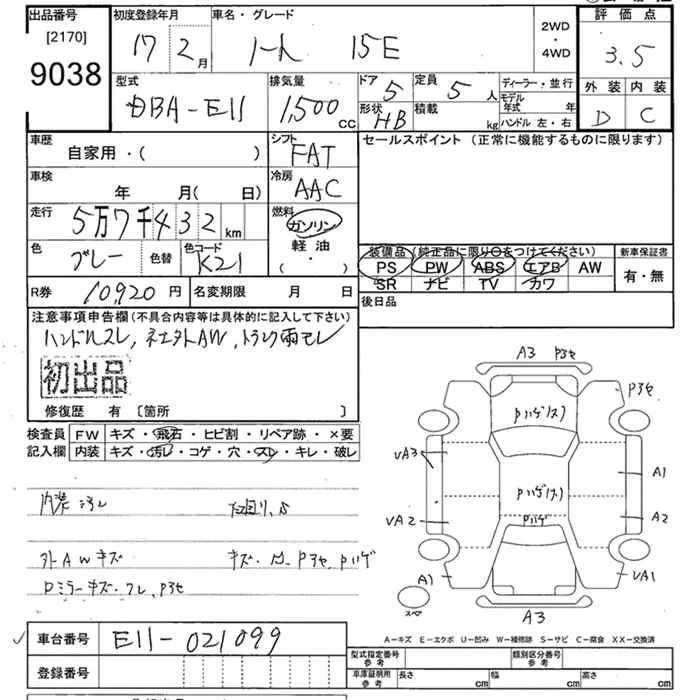 出品番号
[2170]
9038
初度登録年月
17 2月
車名・グレード
ノート 15E
2WD
・
4WD
評価点
3.5
外装 内装
D C
型式
DBA-E11
排気量
1,500 CC
ドア 5
定員 5人
形状 HB
積載 kg
ディーラー・並行
モデル年式 年
ハンドル 左・右
車歴
自家用・( )
シフト
FAT
セールスポイント (正常に機能するものに限ります)
車検
年 月( 日)
冷房
AAC
走行
5万7千432km
燃料
ガソリン
軽油
( ・ )
色
グレー
色替
色コード
K21
装備品 (純正品に限り○をつけてください)
PS PW ABS エアB AW
SR ナビ TV カワ
新車保証書
有・無
R券 10,920円
名変期限 月 日
後日品
注意事項申告欄 (不具合内容等は具体的に記入して下さい)
ハンドルスレ, 社外AW, トランク雨モレ
初出品
修復歴 有 [箇所 ]
検査員
記入欄
FW キズ・飛石・ヒビ割・リペア跡・×要
内装 キズ・汚レ・コゲ・穴・スレ・キレ・破レ
内装 汚レ
外AWキズ
キズ・凹・Pヨセ, Pハゲ
ロミラーキズ・ワレ, Pヨセ
A3 Pヨセ
Pヨセ
Pハゲ(ス)
UA3
A1
Pハゲ(ス)
UA2
A2
Pハゲ
A1
UA1
スペア
A3
A-キズ E-エクボ U-凹み W-補修跡 S-サビ C-腐食 XX-交換済
車台番号 E11-021099
登録番号
型式指定番号
参考
類別区分番号
参考
車庫証明用
参考
長さ cm
幅 cm
高さ cm